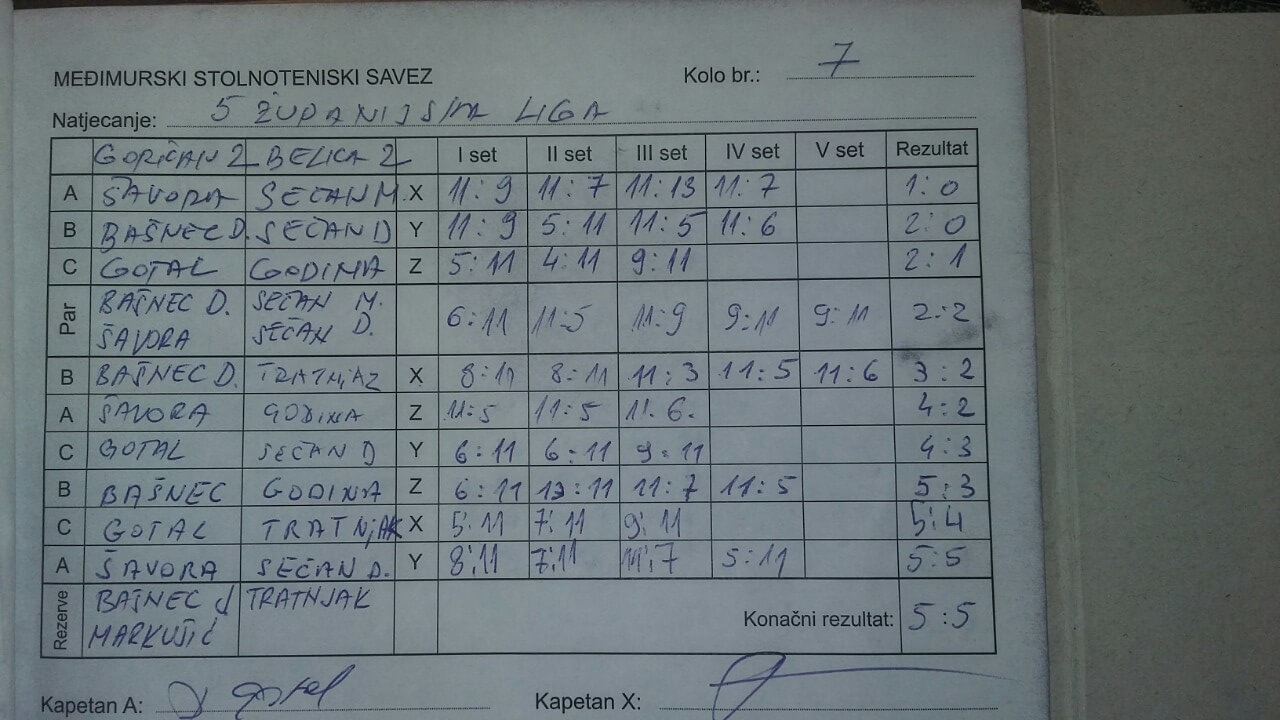 MEĐIMURSKI STOLNOTENISKI SAVEZ Kolo br.: 7
Natjecanje: 5 ŽUPANIJSKA LIGA
GORIČAN 2 BELICA 2 I set II set III set IV set V set Rezultat
A ŠAVORA SEČAN M. X 11:9 11:7 11:13 11:7 1:0
B BAŠNEC D. SEČAN D Y 11:9 5:11 11:5 11:6 2:0
C GOTAL GODINA Z 5:11 4:11 9:11 2:1
Par BAŠNEC D. SEČAN M. 6:11 11:5 11:9 9:11 9:11 2:2
ŠAVORA SEČAN D.
B BAŠNEC D. TRATNJAK X 8:11 8:11 11:3 11:5 11:6 3:2
A ŠAVORA GODINA Z 11:5 11:5 11:6. 4:2
C GOTAL SEČAN D Y 6:11 6:11 9:11 4:3
B BAŠNEC GODINA Z 6:11 13:11 11:7 11:5 5:3
C GOTAL TRATNJAK X 5:11 7:11 9:11 5:4
A ŠAVORA SEČAN D. Y 8:11 7:11 11:7 5:11 5:5
Rezerve BAŠNEC J TRATNJAK Konačni rezultat: 5:5
MARKUŠIĆ
Kapetan A: Gotal Kapetan X: